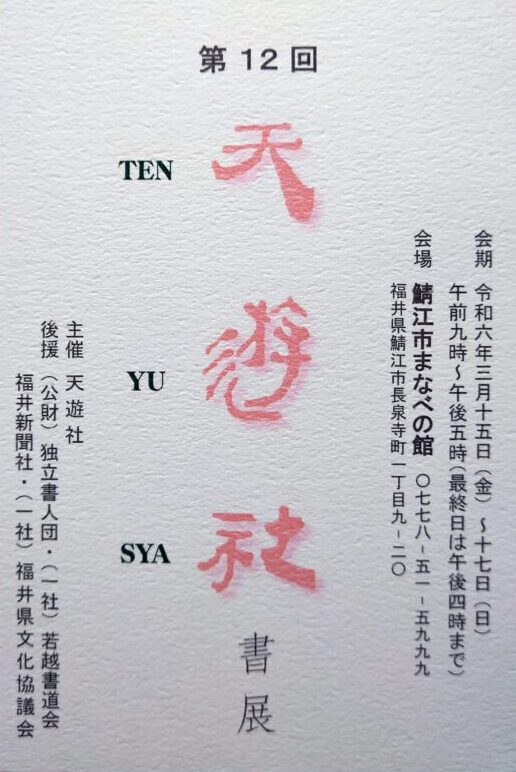 第12回
天遊社
TEN
YU
SYA
書展
会期 令和六年三月十五日(金)〜十七日(日)
午前九時〜午後五時(最終日は午後四時まで)
会場 鯖江市まなべの館 〇七七八-五一-五九九九
福井県鯖江市長泉寺町一丁目九-二〇
主催 天遊社
後援 (公財)独立書人団・(一社)若越書道会
福井新聞社・(一社)福井県文化協議会